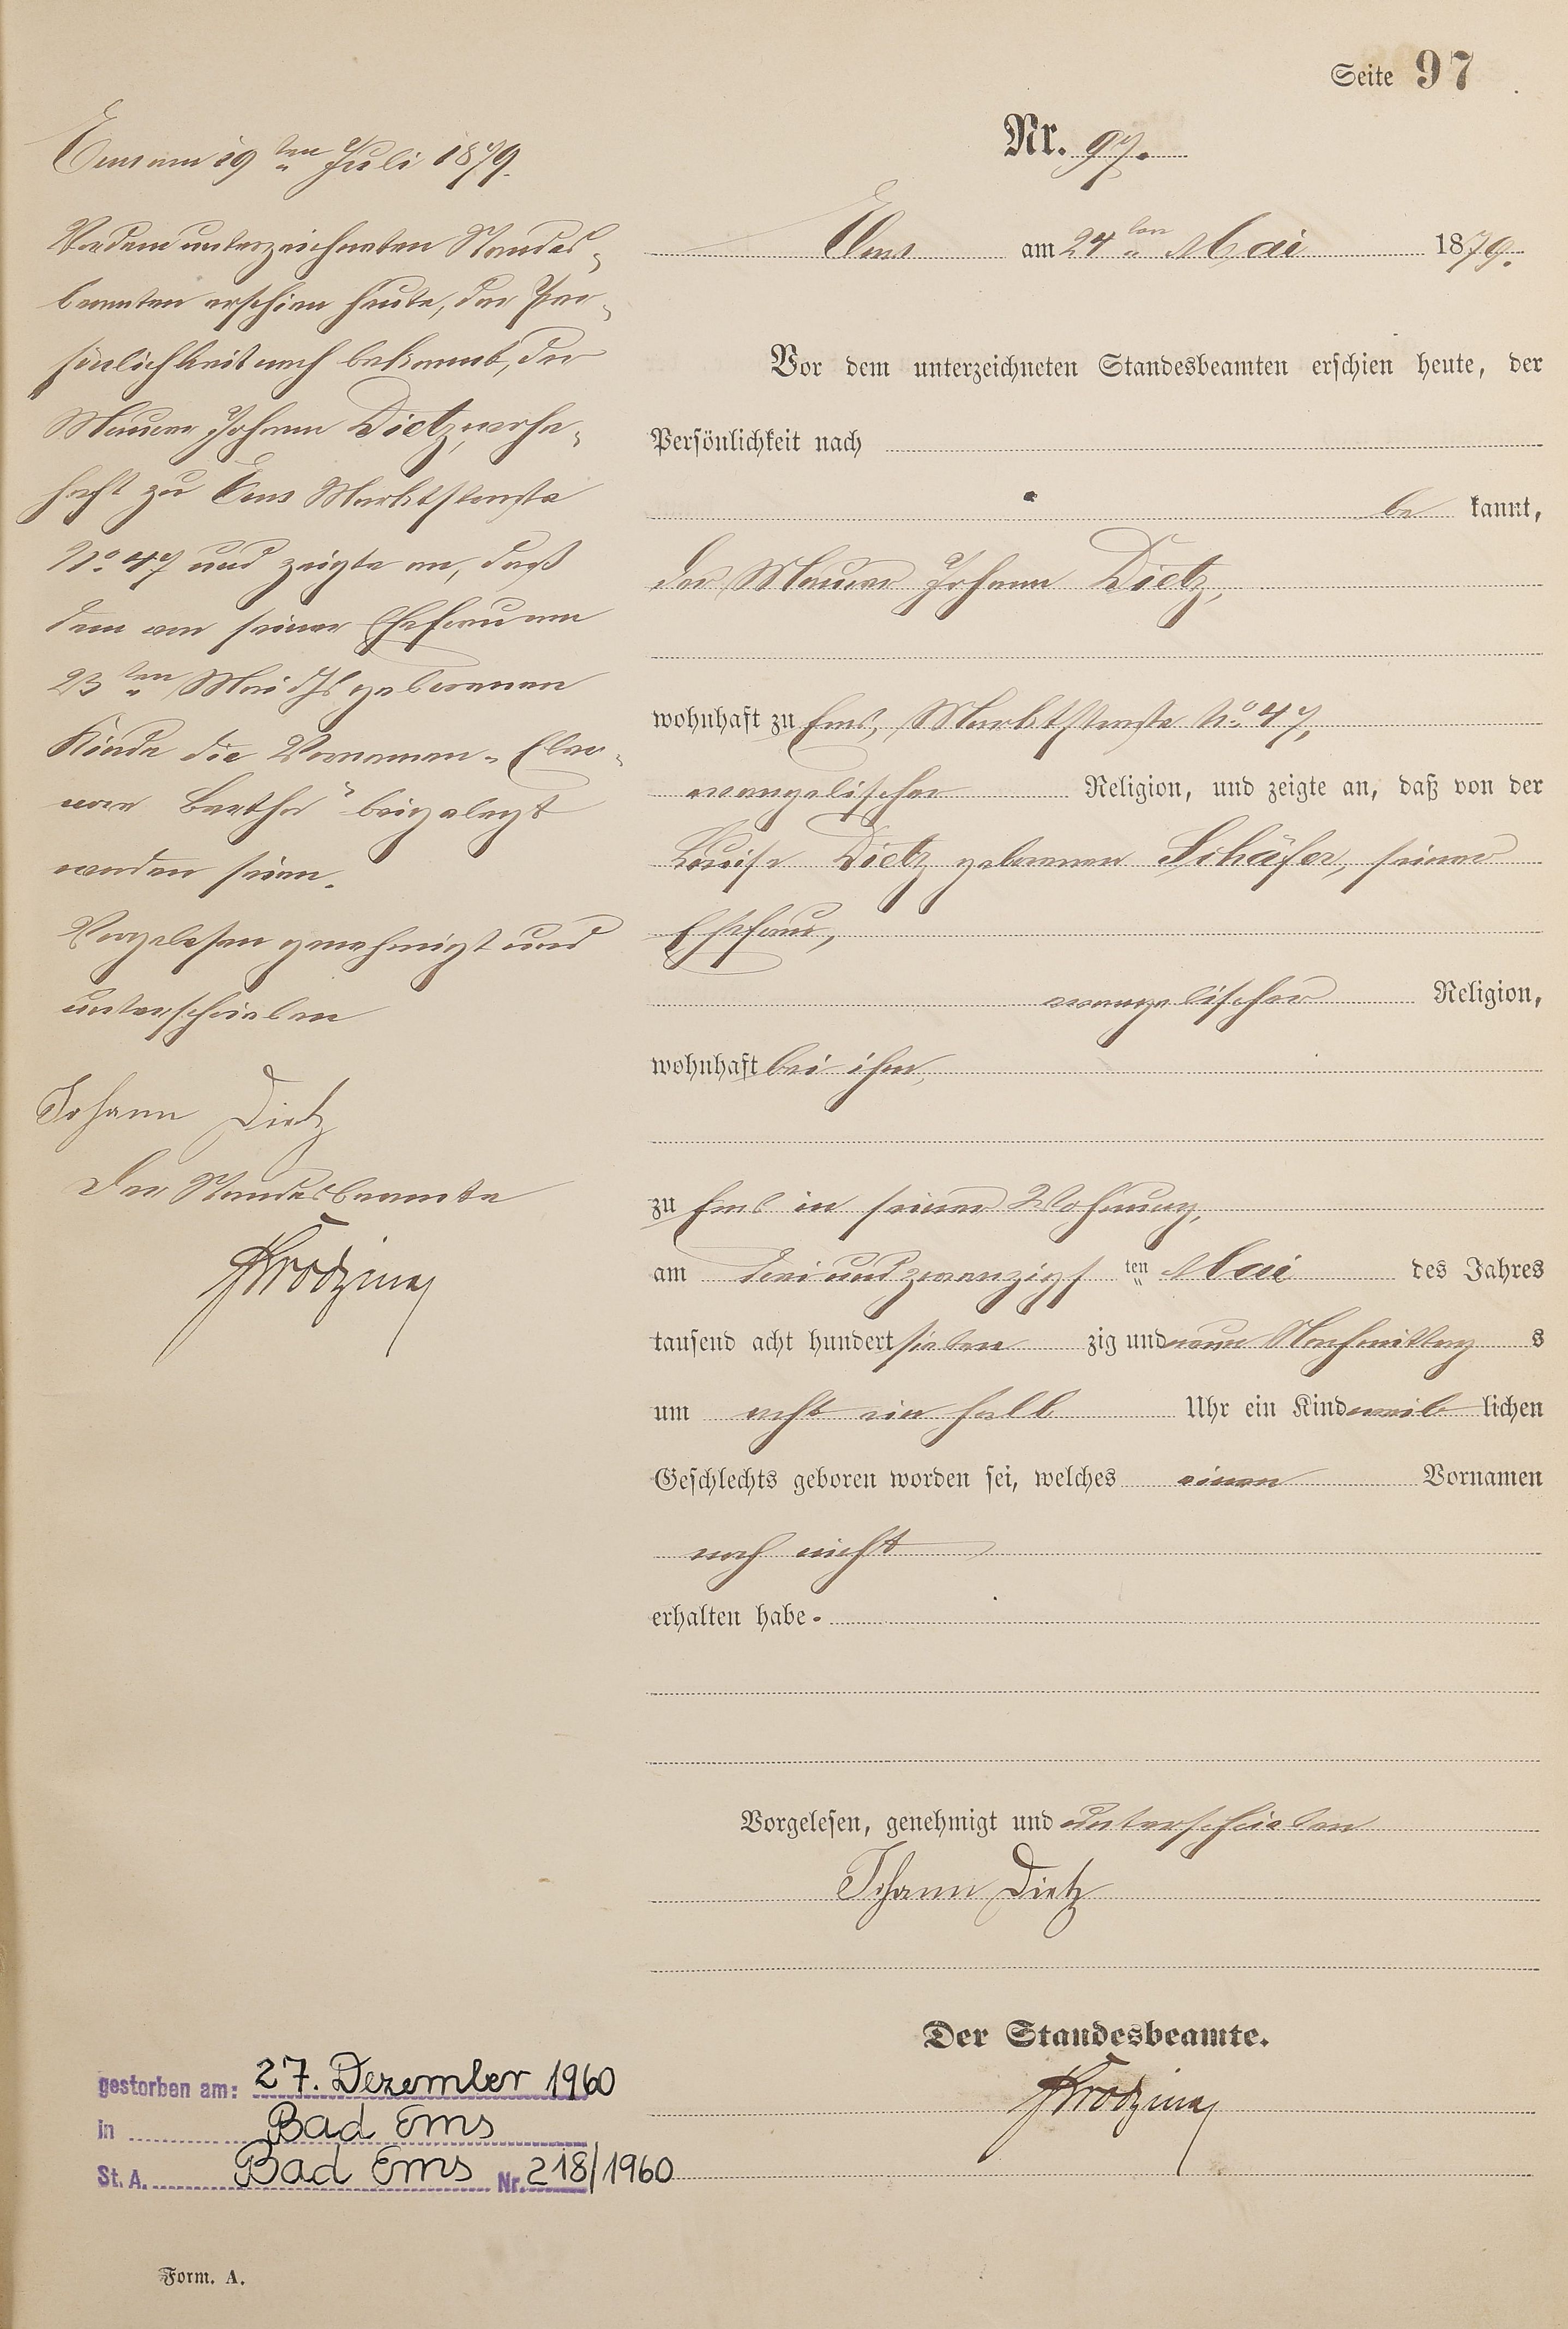 Seite 97
Nr. 97.
Ems am 24ten Mai 1879.
Vor dem unterzeichneten Standesbeamten erschien heute, der
Persönlichkeit nach
be kannt,
der Maurer Johann Dietz,
wohnhaft zu Ems, Marktstraße No. 47,
evangelischer Religion, und zeigte an, daß von der
Louise Dietz geborenen Schäfer, seiner
Ehefrau,
evangelischer Religion,
wohnhaft bei ihm,
zu Ems in seiner Wohnung,
am drei und zwanzigs ten Mai des Jahres
tausend acht hundert sieben zig und neun Nachmittag s
um acht ein halb Uhr ein Kind weib lichen
Geschlechts geboren worden sei, welches einen Vornamen
noch nicht
erhalten habe.
Vorgelesen, genehmigt und unterschrieben
Johann Dietz
Der Standesbeamte.
Ems am 19ten Juli 1879.
Vor dem unterzeichneten Standes-
beamten erschien heute, der Per-
sönlichkeit nach bekannt, der
Maurer Johann Dietz, wohn-
haft zu Ems Marktstraße
No. 47 und zeigte an, daß
dem von seiner Ehefrau am
23ten Mai d Js geborenen
Kinde die Vornamen "Eleo-
nore Bertha" beigelegt
worden seien.
Vorgelesen genehmigt und
unterschrieben
Johann Dietz
Der Standesbeamte
gestorben am: 27. Dezember 1960
in Bad Ems
St. A. Bad Ems Nr. 218/1960
Form. A.